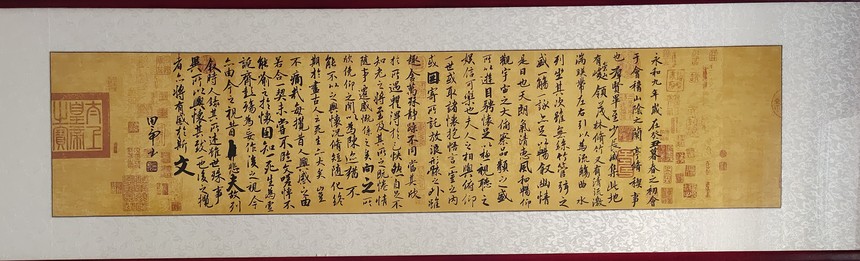 永和九年歲在癸丑暮春之初會
于會稽山陰之蘭亭脩稧事
也羣賢畢至少長咸集此地
有崇山峻領茂林脩竹又有清流激
湍暎帶左右引以為流觴曲水
列坐其次雖無絲竹管弦之
盛一觴一詠亦足以暢敘幽情
是日也天朗氣清惠風和暢仰
觀宇宙之大俯察品類之盛
所以遊目騁懷足以極視聽之
娛信可樂也夫人之相與俯仰
一世或取諸懷抱悟言一室之內
或因寄所託放浪形骸之外雖
趣舍萬殊靜躁不同當其欣
於所遇暫得於己怏然自足不
知老之將至及其所之既惓情
隨事遷感慨係之矣向之所
欣俛仰之閒以為陳迹猶不
能不以之興懷況脩短隨化終
期於盡古人云死生亦大矣豈
不痛哉每攬昔人興感之由
若合一契未嘗不臨文嗟悼不
能喻之於懷固知一死生為虛
誕齊彭殤為妄作後之視今
亦由今之視昔悲夫故列
敘時人錄其所述雖世殊事
異所以興懷其致一也後之攬
者亦將有感於斯文
太上皇帝之寶